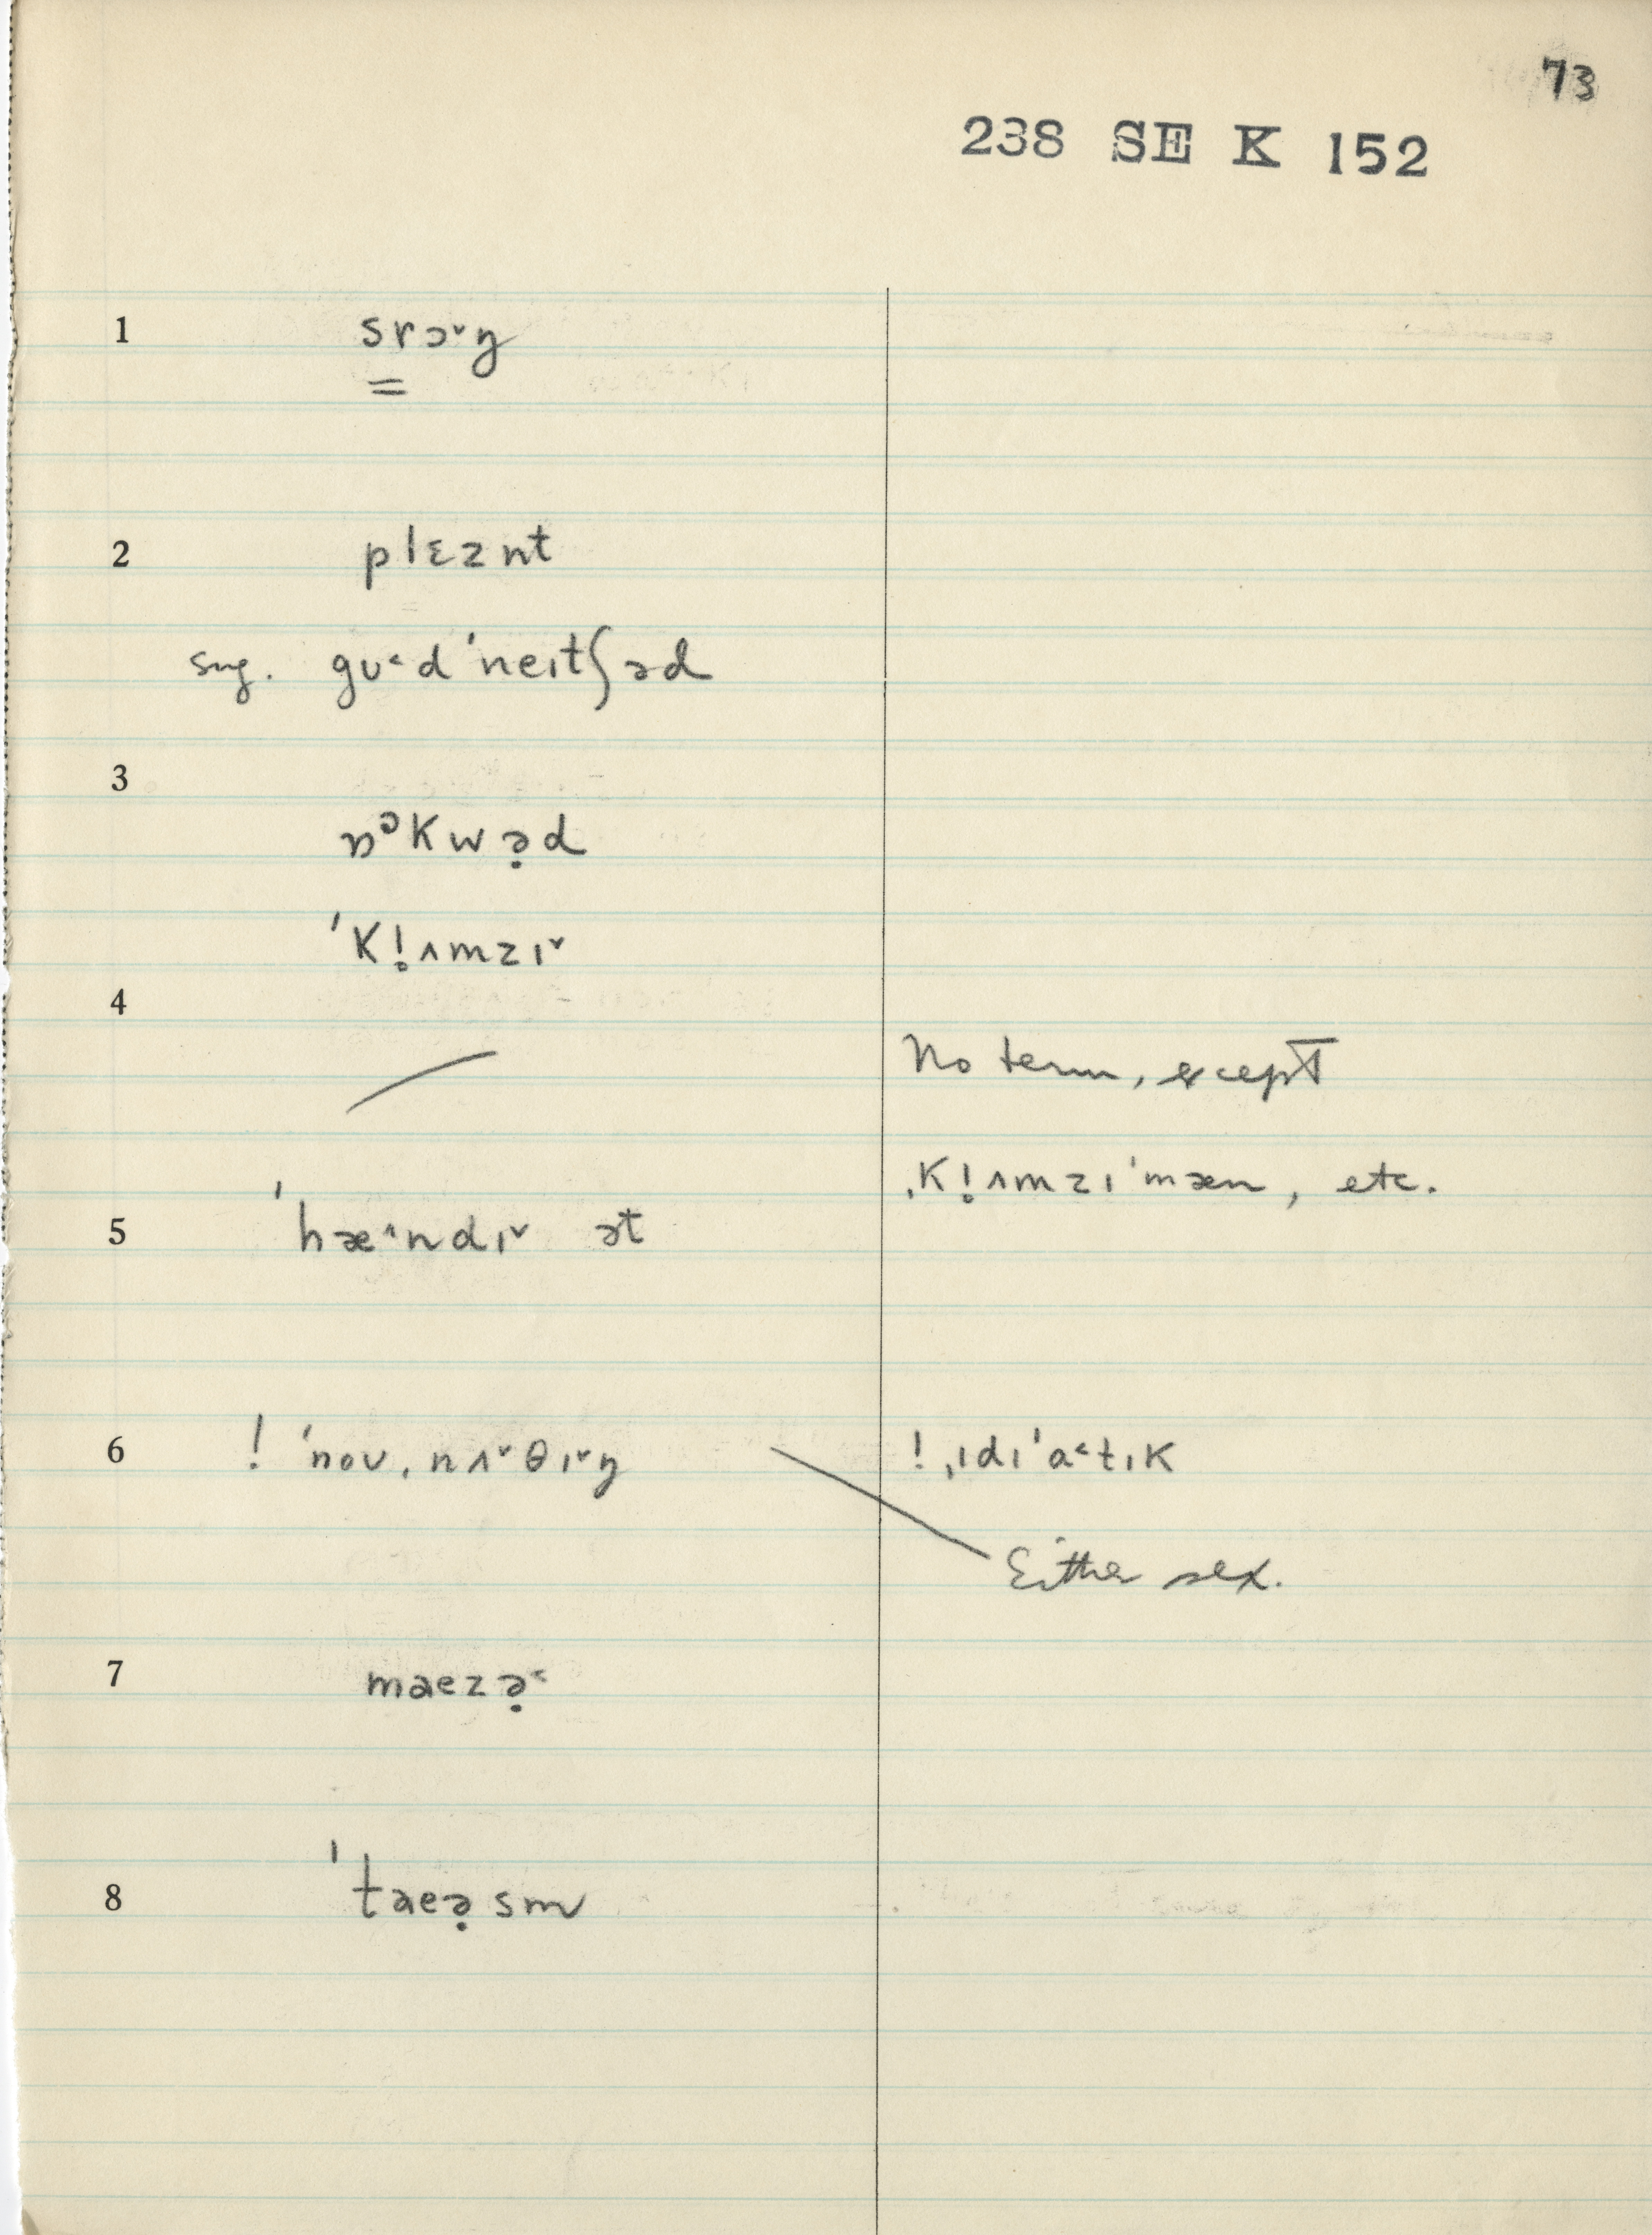 73
238 SE K 152
1 srɔ˅ŋ
=
2 plɛznt
sug. gu˂d ˈneɪtʃəd
3
ɒᵊKwə̣d
ˈK!̥ʌmzɪ˅
4
No term, except
ˌK!̥ʌmzɪˈmæn, etc.
5 ˈhæ˄ndɪ˅ ət
6 ! ˈnoʊˌnʌ˅θɪ˅ŋ
! ˌɪdɪˈɑ˂tɪK
Either sex.
7 maezə̣˂
8 ˈtaeə̣sm